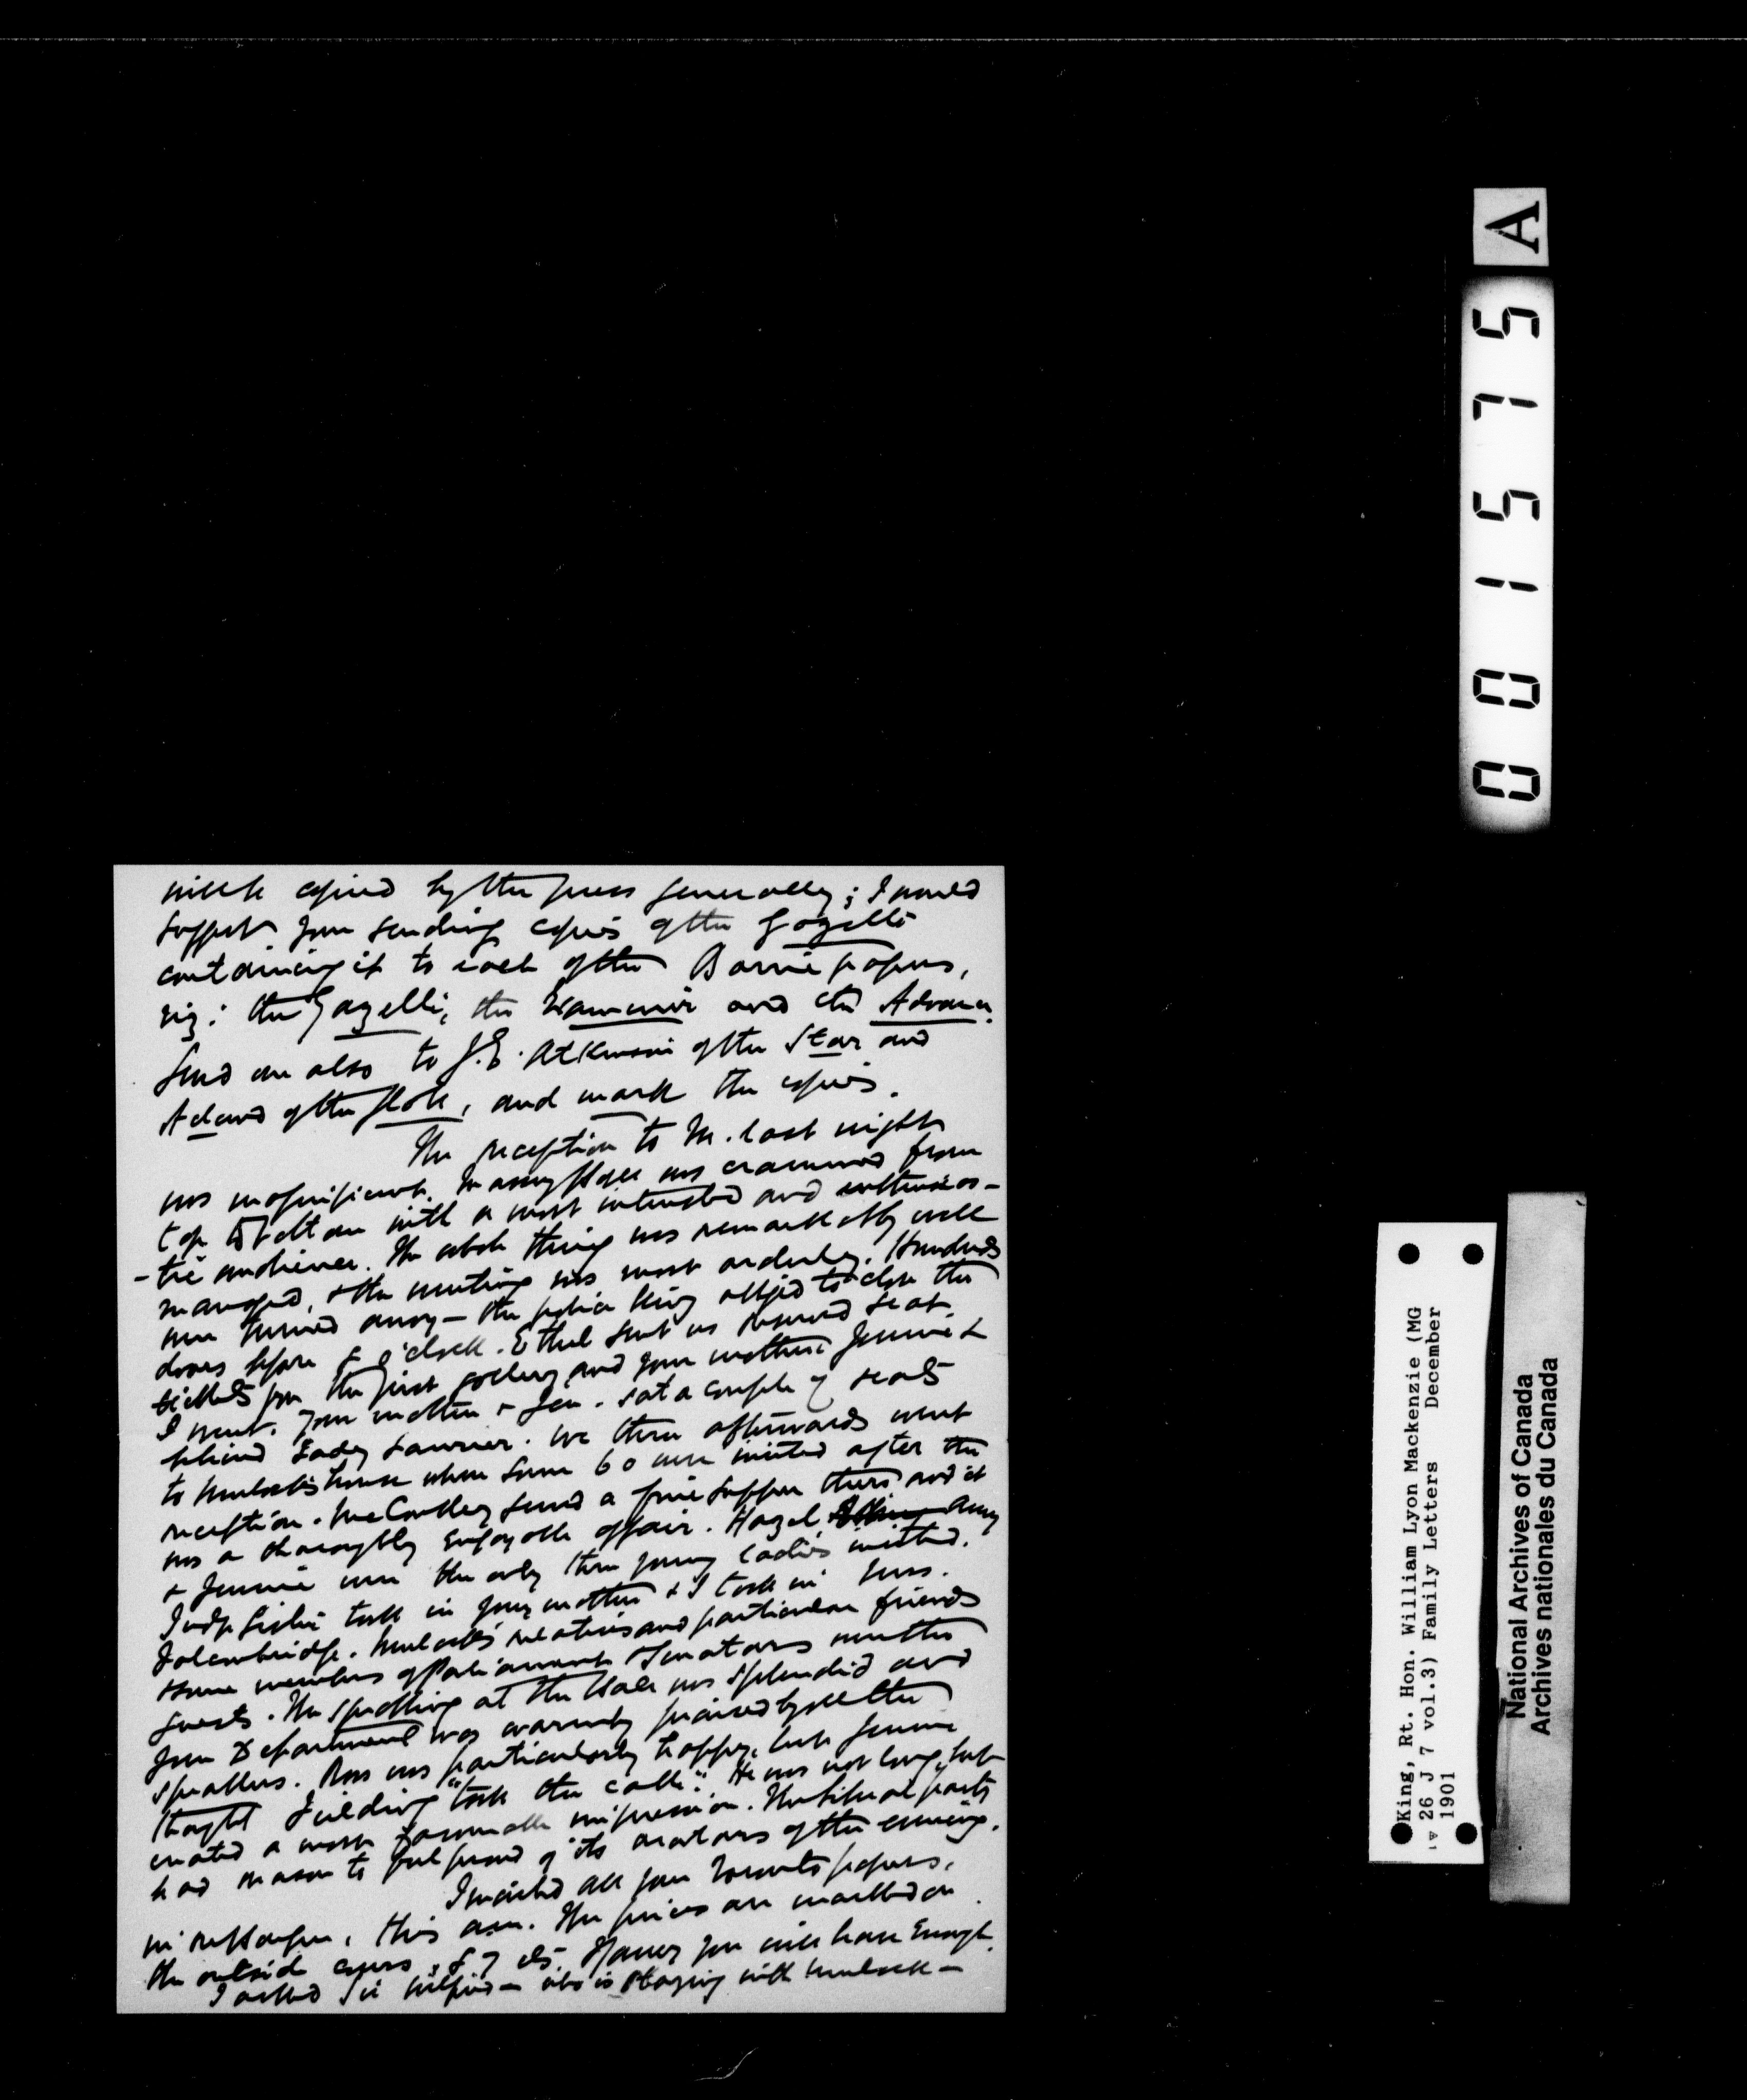 will be copied by the press generally; I would
suggest your sending copies of the Gazette
containing it to each of the Barrie papers,
viz: the Gazette, the Examiner and the Advance.
Send one also to J.E. Atkinson of the Star and
Acland of the Globe, and mark the copies.
The reception to M. last night
was magnificent. Massey Hall was crammed from
top to bottom with a most interested and enthusias-
-tic audience. The whole thing was remarkably well
managed, & the meeting was most orderly. Hundreds
were turned away — the police being obliged to close the
doors before 8 o'clock. Ethel sent us reserved seat
tickets for the first gallery and your mother, Jennie &
I went. Your mother & Jen. sat a couple of seats
behind Lady Laurier. We three afterwards went
to Mulock's house where some 60 were invited after the
reception. McConkey served a fine supper there and it
was a thoroughly enjoyable affair. Hazel, Amy
& Jennie were the only three young ladies invited.
Judge Lister took in your mother & I took in Mrs.
Falconbridge. Mulock's relatives and particular friends
& some members of Parliament & Senators were the
guests. The speaking at the Hall was splendid and
your Department was warmly praised by all the
speakers. Ross was particularly happy, but Jennie
thought Fielding "took the cake". He was not long, but
created a most favourable impression. The Liberal party
had reason to feel proud of its orators of the evening.
I mailed all your Toronto papers,
this a.m. The prices are marked on
the outside covers, I fancy you will have enough.
I asked Sir Wilfrid — who is staying with Mulock —
A
001575
King, Rt. Hon. William Lyon Mackenzie (MG
26 J 7 vol.3) Family Letters December
1901
National Archives of Canada
Archives nationales du Canada